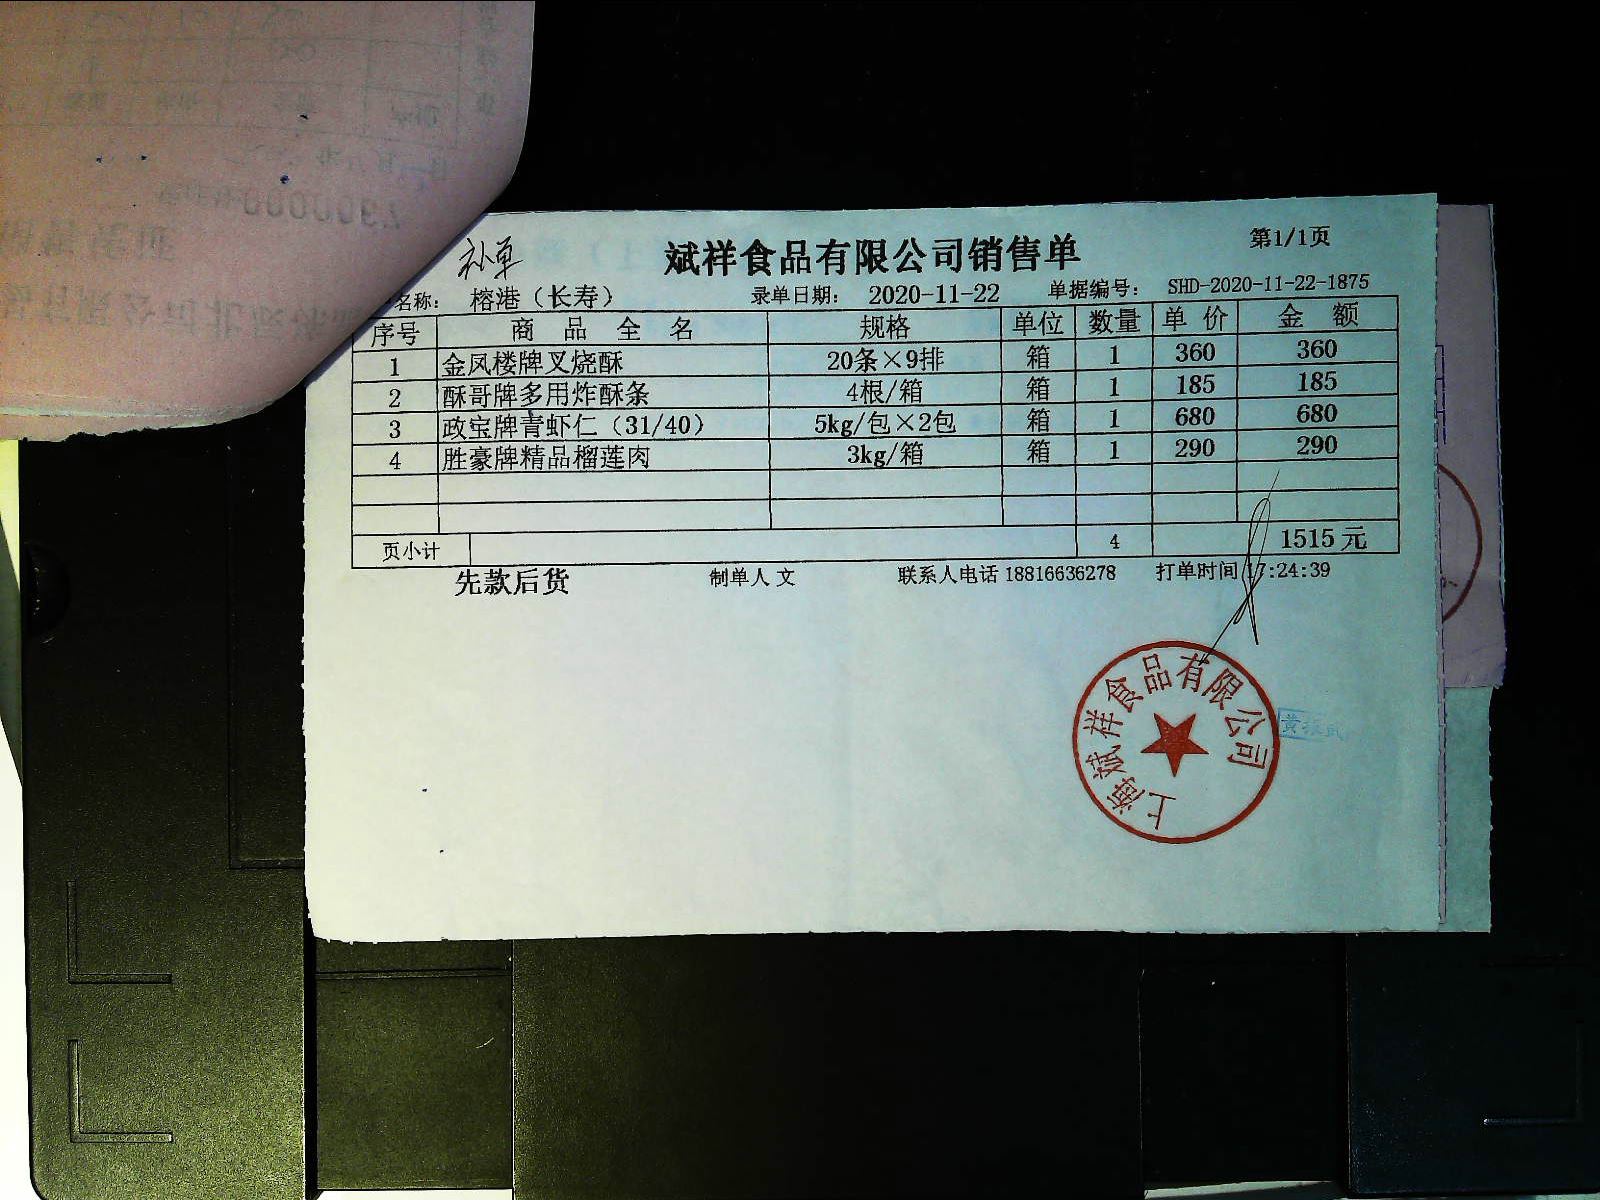 补单
斌祥食品有限公司销售单
第1/1页
名称： 榕港（长寿） 录单日期： 2020-11-22 单据编号： SHD-2020-11-22-1875
序号 商 品 全 名 规格 单位 数量 单 价 金 额
1 金凤楼牌叉烧酥 20条×9排 箱 1 360 360
2 酥哥牌多用炸酥条 4根/箱 箱 1 185 185
3 政宝牌青虾仁（31/40） 5kg/包×2包 箱 1 680 680
4 胜豪牌精品榴莲肉 3kg/箱 箱 1 290 290
页小计 4 1515元
先款后货 制单人 文 联系人电话 18816636278 打单时间 17:24:39
上海斌祥食品有限公司